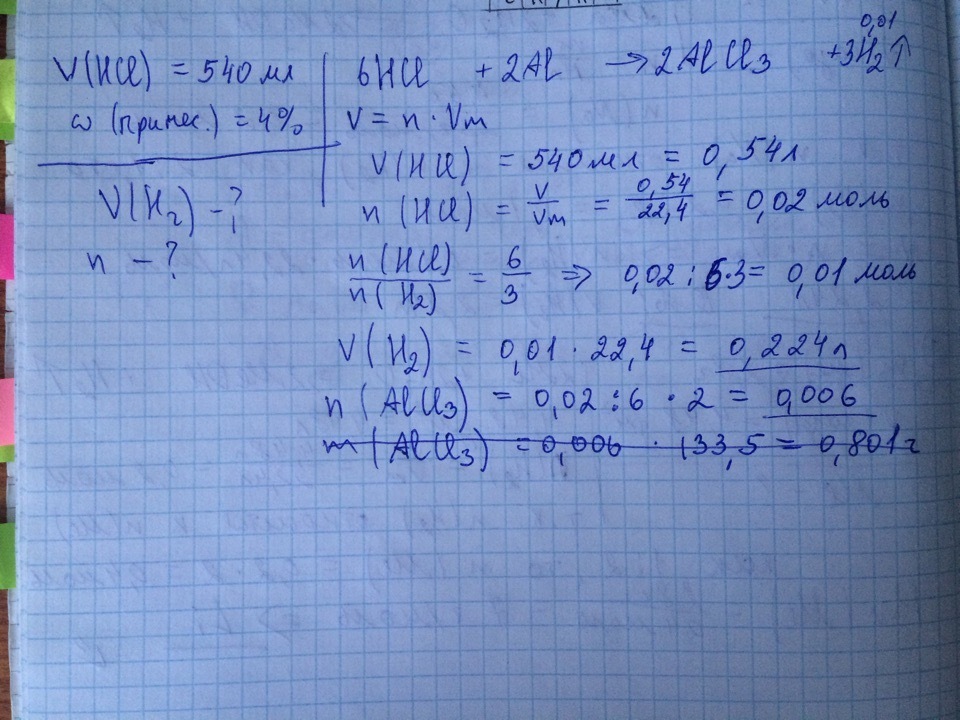 V(HCl) = 540 мл
ω (примес.) = 4%
V(H₂) - ?
n - ?
0,01
6HCl + 2Al → 2AlCl₃ + 3H₂↑
V = n · Vm
V(HCl) = 540 мл = 0,54 л
n (HCl) = V/Vm = 0,54/22,4 = 0,02 моль
n(HCl)/n(H₂) = 6/3 ⇒ 0,02 : 6·3 = 0,01 моль
V(H₂) = 0,01 · 22,4 = 0,224 л
n (AlCl₃) = 0,02 : 6 · 2 = 0,006
m (AlCl₃) = 0,006 · 133,5 = 0,801 г